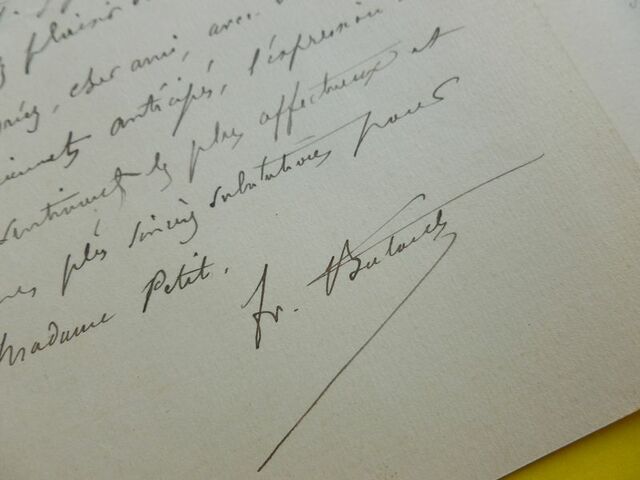 plaisir
cher ami, avec
anticipés, l'expression
sentiments les plus affectueux et
mes plus sincères salutations pour
Madame Petit.
fr.